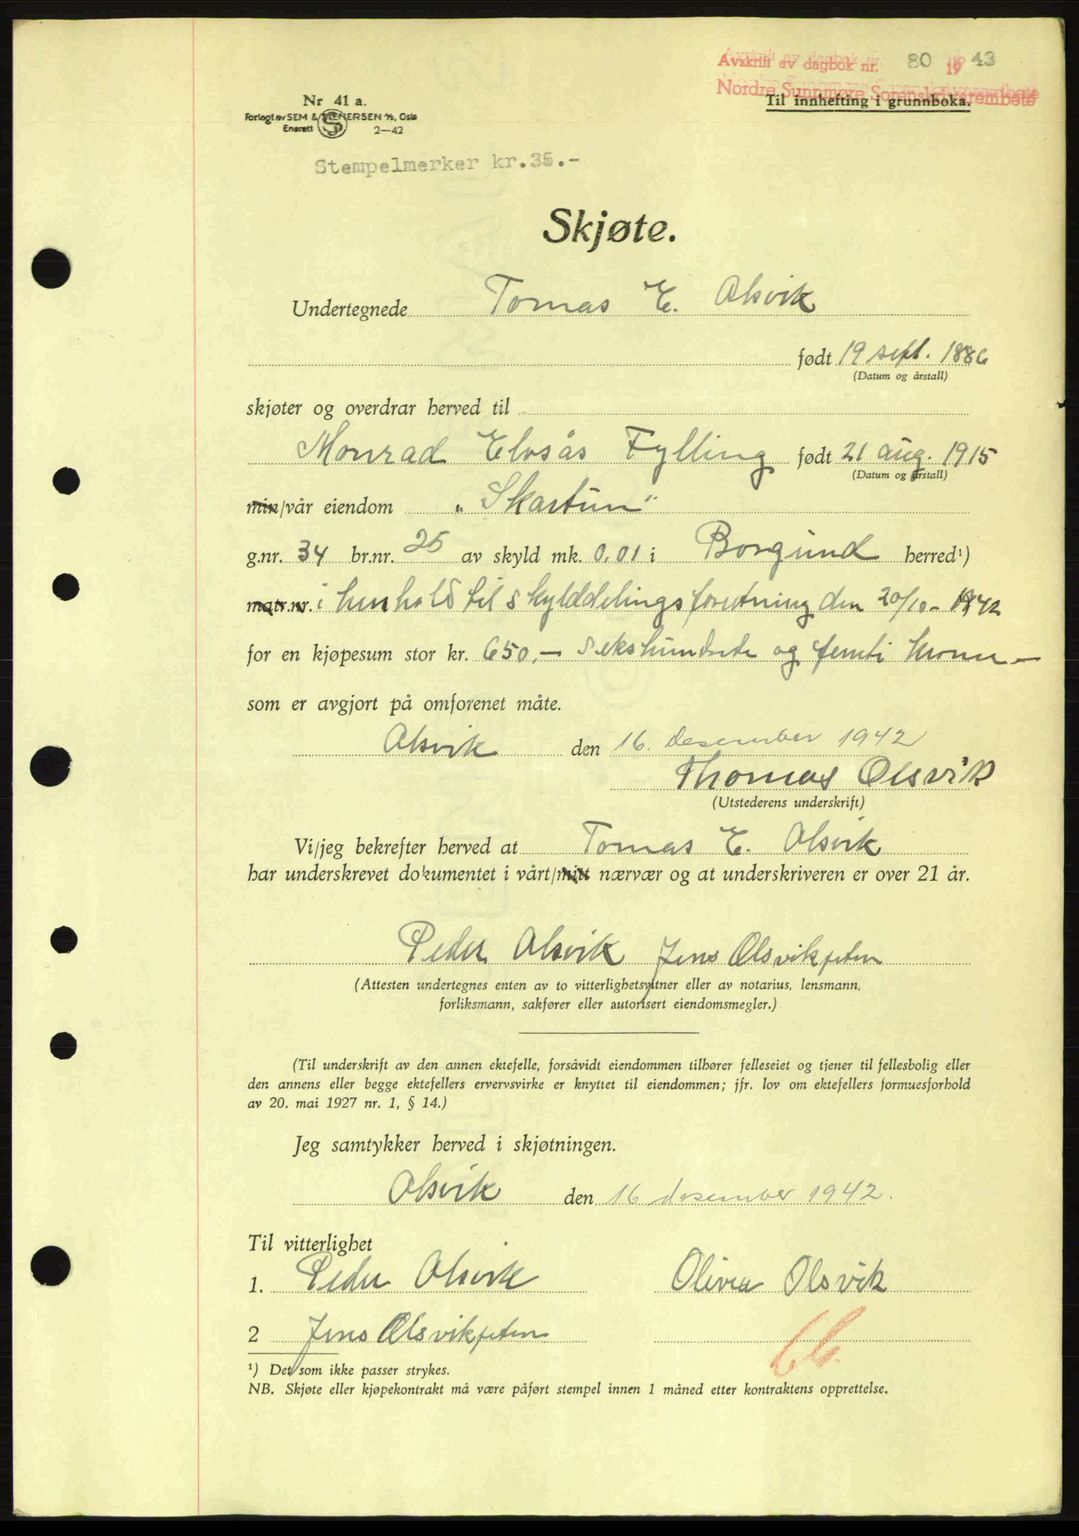 Avskrift av dagbok nr. 80 19 43
Nordre Sunnmøre Sorenskriverembete
Til innhefting i grunnboka.
Nr 41 a.
Forlagt av SEM & STENERSEN A/S, Oslo
Enerett 2—42
Stempelmerker kr.35.-
Skjøte.
Undertegnede Tomas E. Alsvik
født 19 sept. 1886
(Datum og årstall)
skjøter og overdrar herved til
Monrad Elvsås Fylling født 21 aug. 1915
(Datum og årstall)
min/vår eiendom „Skartun"
g.nr. 34 br.nr. 25 av skyld mk. 0.01 i Borgund herred¹)
matr.nr. i henhold til skylddelingsforretning den 20/10- 1942
for en kjøpesum stor kr. 650.— sekshundrede og femti kroner—
som er avgjort på omforenet måte.
Alsvik den 16. desember 1942
Thomas Olsvik
(Utstederens underskrift)
Vi/jeg bekrefter herved at Tomas E. Alsvik
har underskrevet dokumentet i vårt/mitt nærvær og at underskriveren er over 21 år.
Peder Alsvik Jens Olsvikjeten
(Attesten undertegnes enten av to vitterlighetsvitner eller av notarius, lensmann,
forliksmann, sakfører eller autorisert eiendomsmegler.)
(Til underskrift av den annen ektefelle, forsåvidt eiendommen tilhører felleseiet og tjener til fellesbolig eller
den annens eller begge ektefellers ervervsvirke er knyttet til eiendommen; jfr. lov om ektefellers formuesforhold
av 20. mai 1927 nr. 1, § 14.)
Jeg samtykker herved i skjøtningen.
Alsvik den 16 desember 1942.
Til vitterlighet
1. Peder Alsvik Olivia Olsvik
2 Jens Olsvikjeten
¹) Det som ikke passer strykes.
NB. Skjøte eller kjøpekontrakt må være påført stempel innen 1 måned etter kontraktens opprettelse.